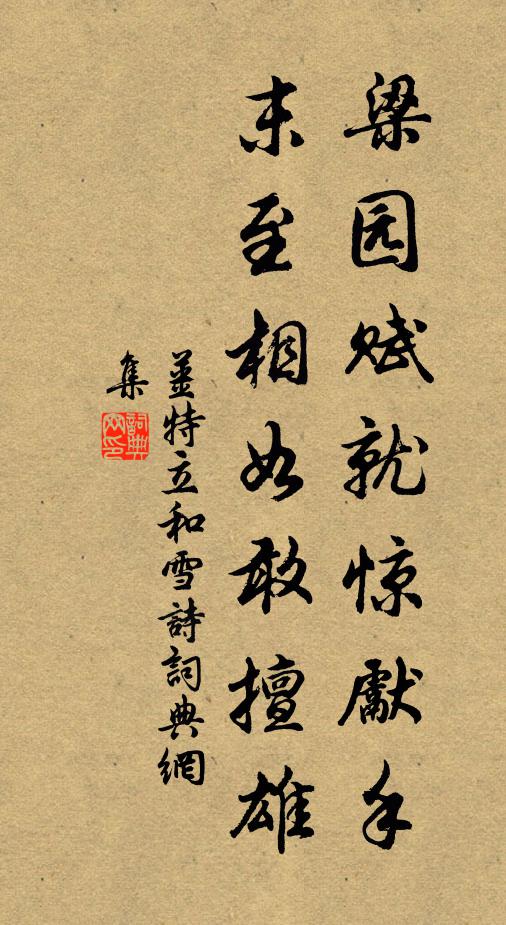 梁园赋就惊獻手
末至相如敢擅雄
姜特立和雪詩詞典網
集
詞典網印